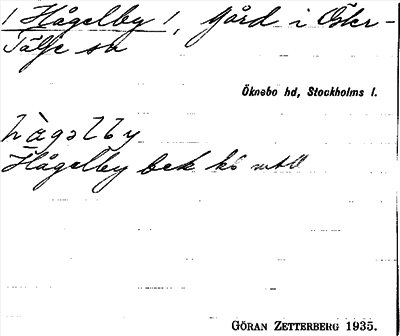 / Hågelby /, gård i Öster-
Tälje sn
Öknebo hd, Stockholms l.
hàgəlby
Hågelby bek kö
GÖRAN ZETTERBERG 1935.